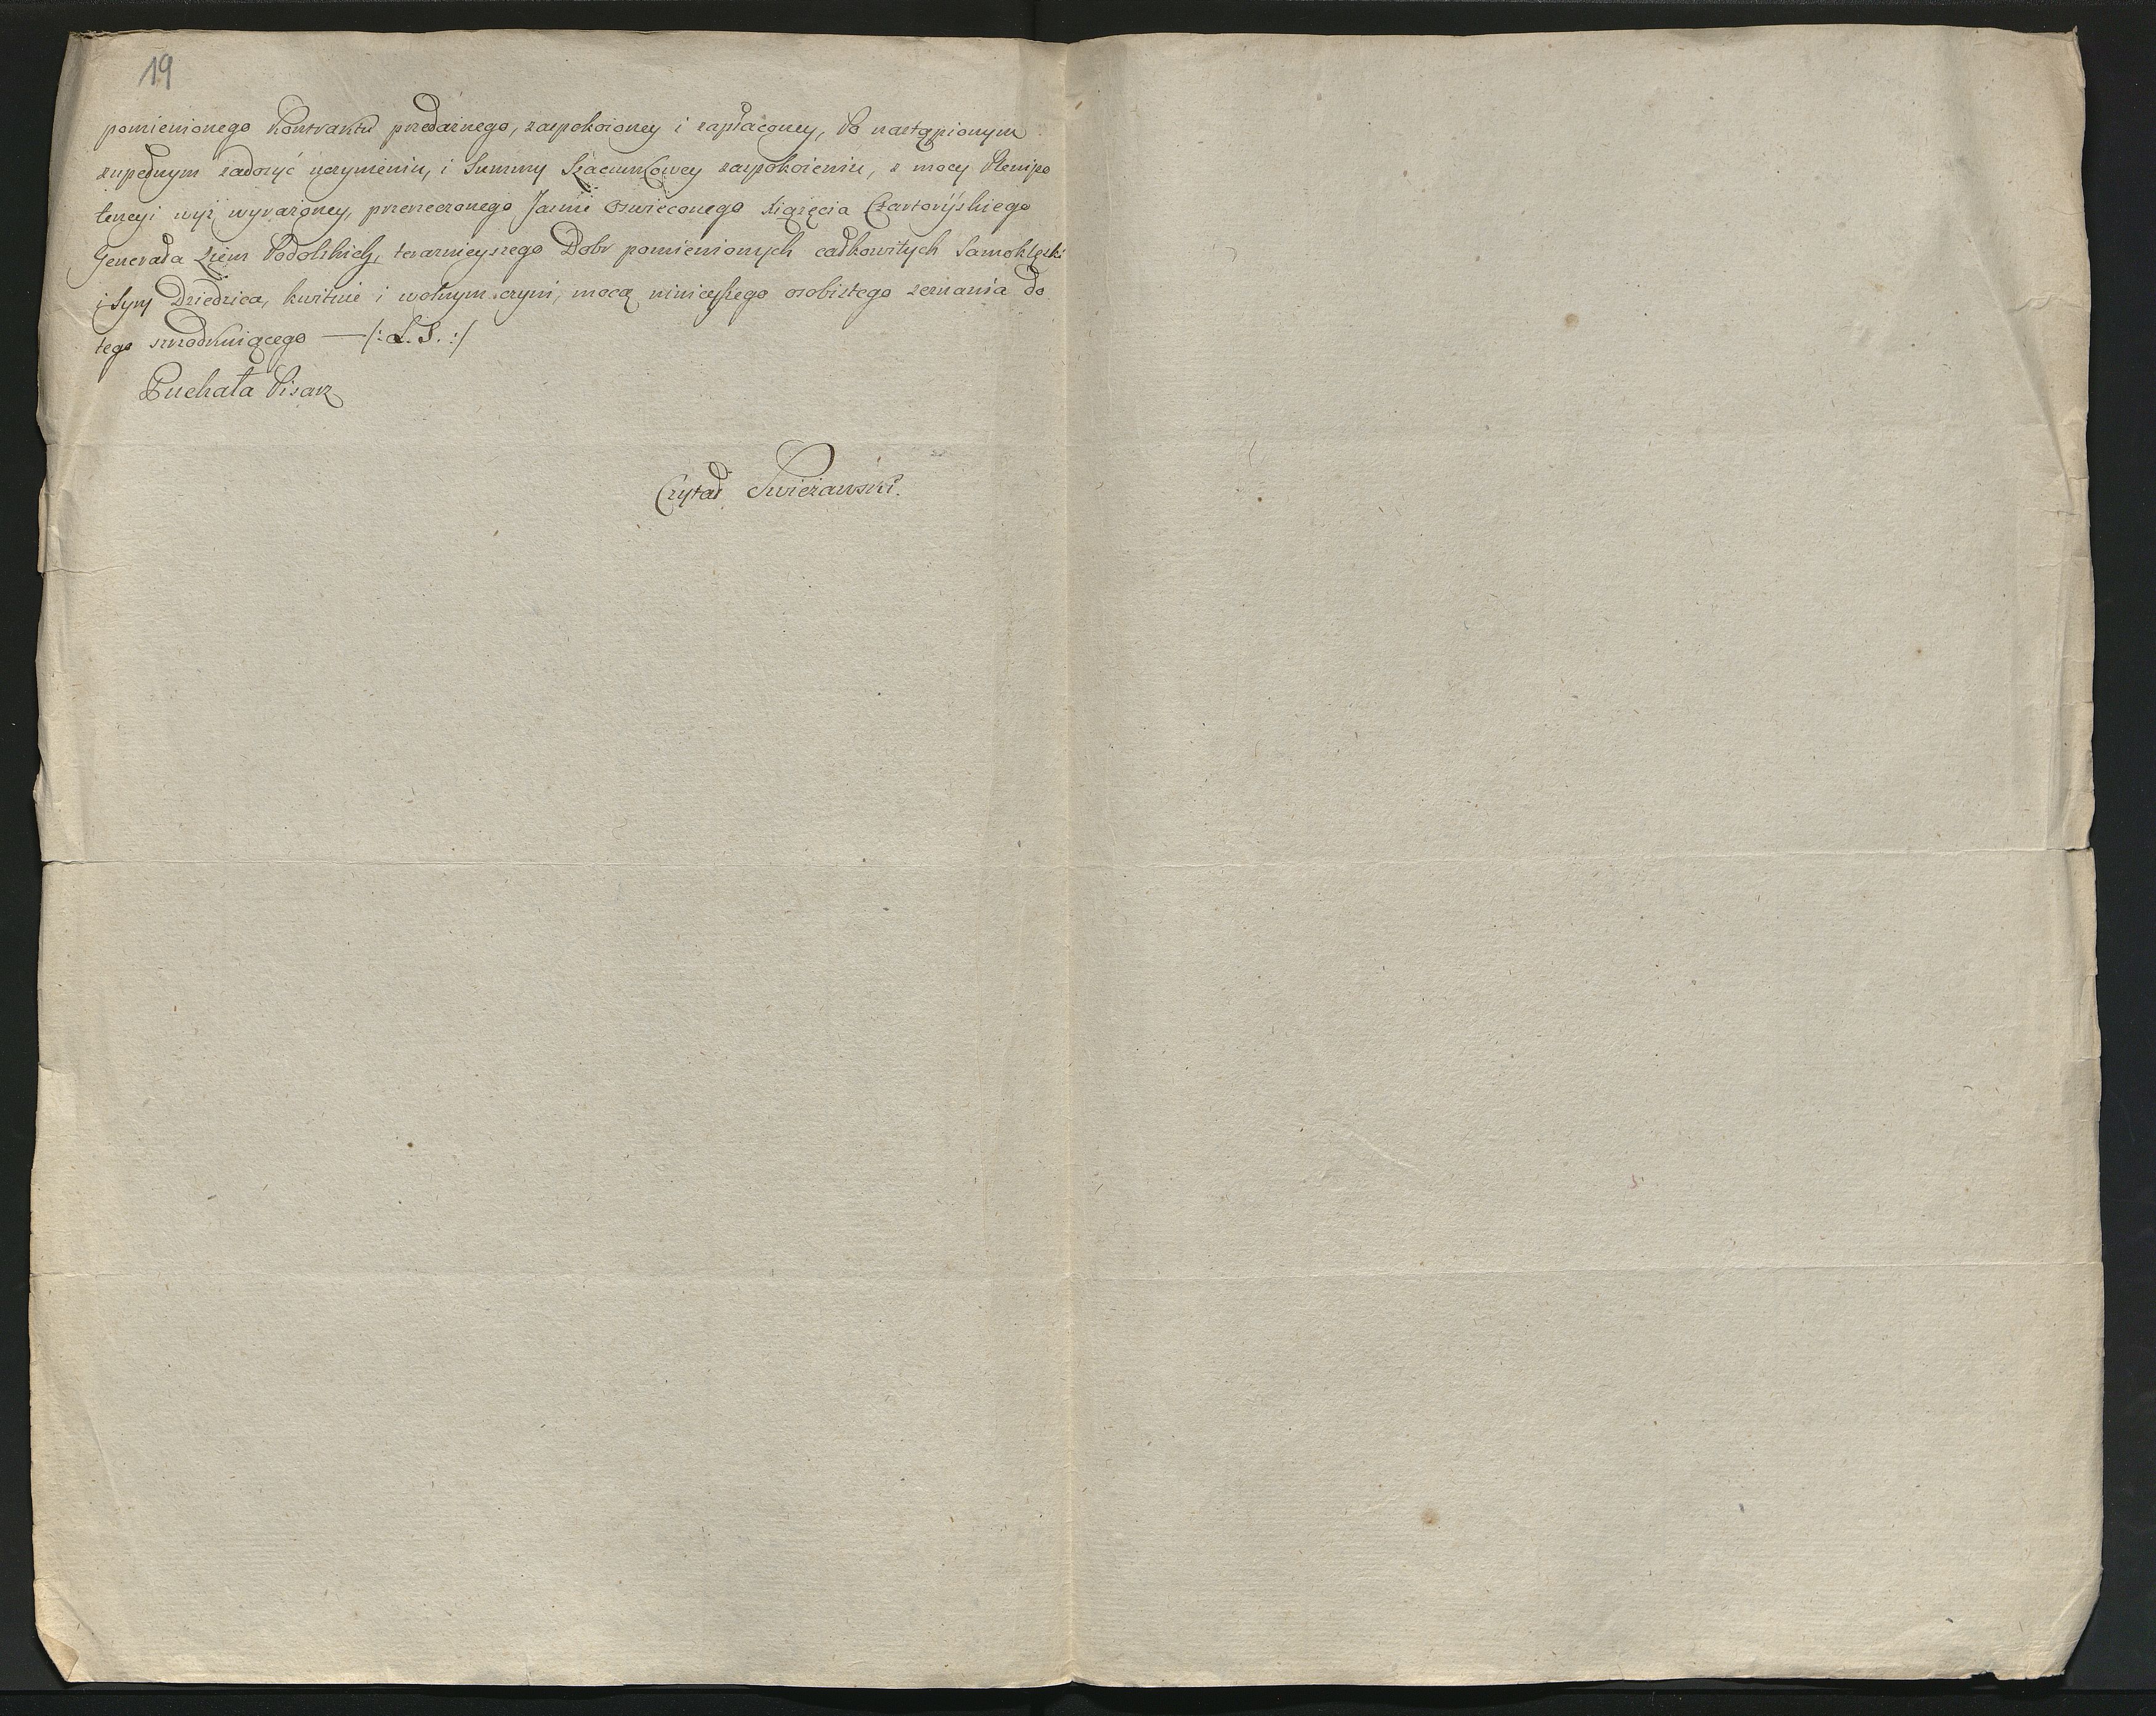 19
pomienionego Kontraktu przedażnego, zaspokoioney i zapłaconey, Po nastąpionym
zupełnym zadosyć uczynieniu, i Summy Szacunkowey zaspokoieniu, z mocy Plenipo
tencyi wyż wyrażoney, przerzeczonego Jaśnie Oswieconego Xiążęcia Czartoryiskiego
Generała Ziem Podolskich, teraznieyszego Dobr pomienionych całkowitych Samoklęski
i Syry Dziedzica, kwituie i wolnym czyni, mocą ninieyszego osobistego zeznania do
tego szrodkuiącego —/: L. S. :/
Puchała Pisarz
Czytał Swieżawski.